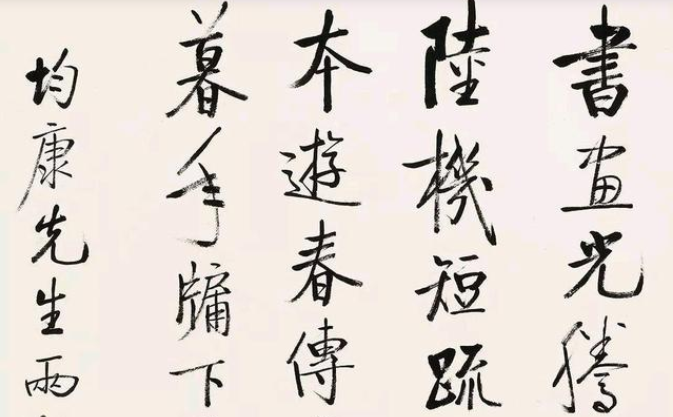 書畫光騰
陸機短疏
本遊春傳
暮手牖下
均康先生兩